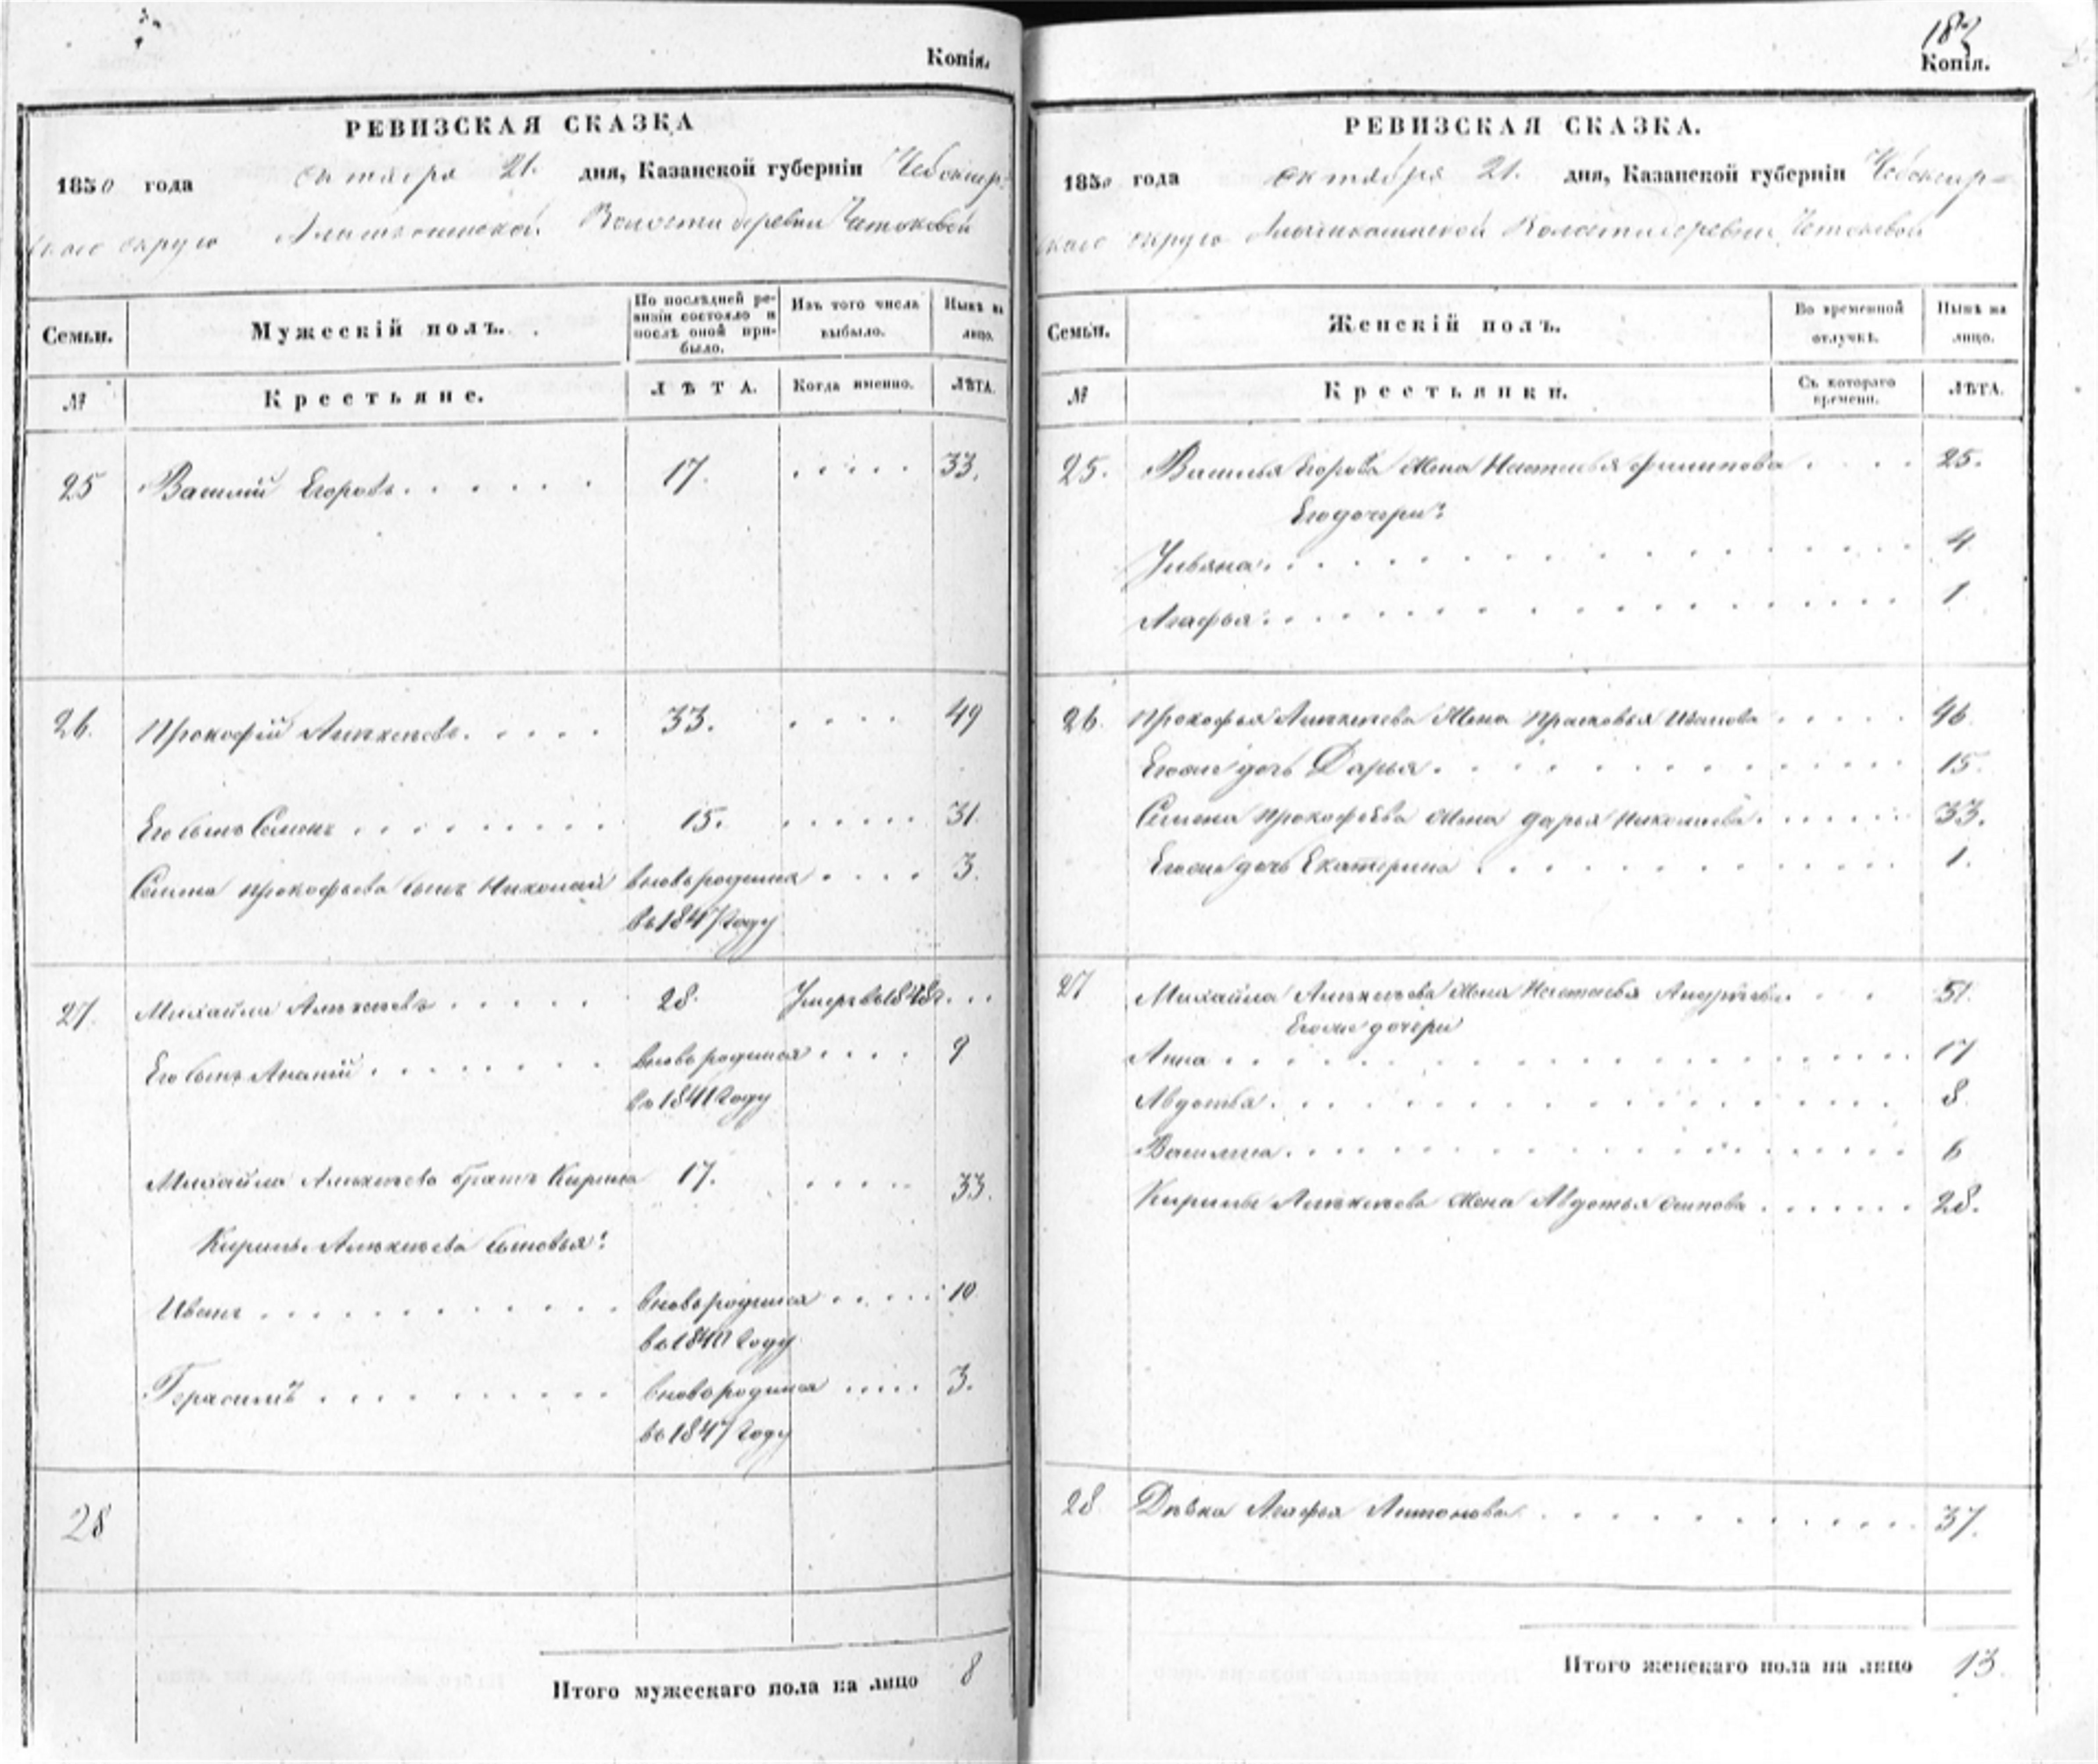 Копія.
РЕВИЗСКАЯ СКАЗКА
1850 года октября 21. дня, Казанской губерніи Чебоксар-
скаго округа Волости деревни
Семьи. Мужескій полъ. По послѣдней ре-визіи состояло и послѣ оной при-было. Изъ того числа выбыло. Нынѣ на лицо.
№ Крестьяне. ЛѢТА. Когда именно. ЛѢТА.
25 Василій Егоровъ. 17. 33.
26. Прокофій Алѣксѣевъ. 33. 49
Его сынъ Семенъ 15. 31.
Семена Прокофьева сынъ Николай вновьродился 3.
въ 1847 году
27. Михайла Алѣксѣевъ 28. Умеръ въ 1848г.
Его сынъ Ананій вновьродился 9
въ 1841 году
Михайла Алѣксѣева братъ Кирила 17. 33.
Кирилы Алѣксѣева сыновья:
Иванъ вновьродился 10
въ 1840 году
Герасимъ вновьродился 3.
въ 1847 году
28
Итого мужескаго пола на лицо 8
182
Копія.
РЕВИЗСКАЯ СКАЗКА.
1850 года октября 21. дня, Казанской губерніи Чебоксар=
скаго округа Волости деревни
Семьи. Женскій полъ. Во временной отлучкѣ. Нынѣ на лицо.
№ Крестьянки. Съ котораго времени. ЛѢТА.
25. Василья Егорова жена Настасья Филипова 25.
Его дочери:
Ульяна. 4
Агафья. 1
26. Прокофья Алѣксѣева жена Прасковья Иванова 46.
Егоже дочь Дарья. 15.
Семена Прокофьева жена Дарья Николаева. 33.
Егоже дочь Екатерина 1.
27 Михайла Алѣксѣева жена Настасья Андрѣева. 51.
Егоже дочери
Анна 17
Авдотья. 8
Василиса. 6
Кирилы Алѣксѣева жена Авдотья Осипова 28.
28 Дѣвка Агафья Антонова 37.
Итого женскаго пола на лицо 13.